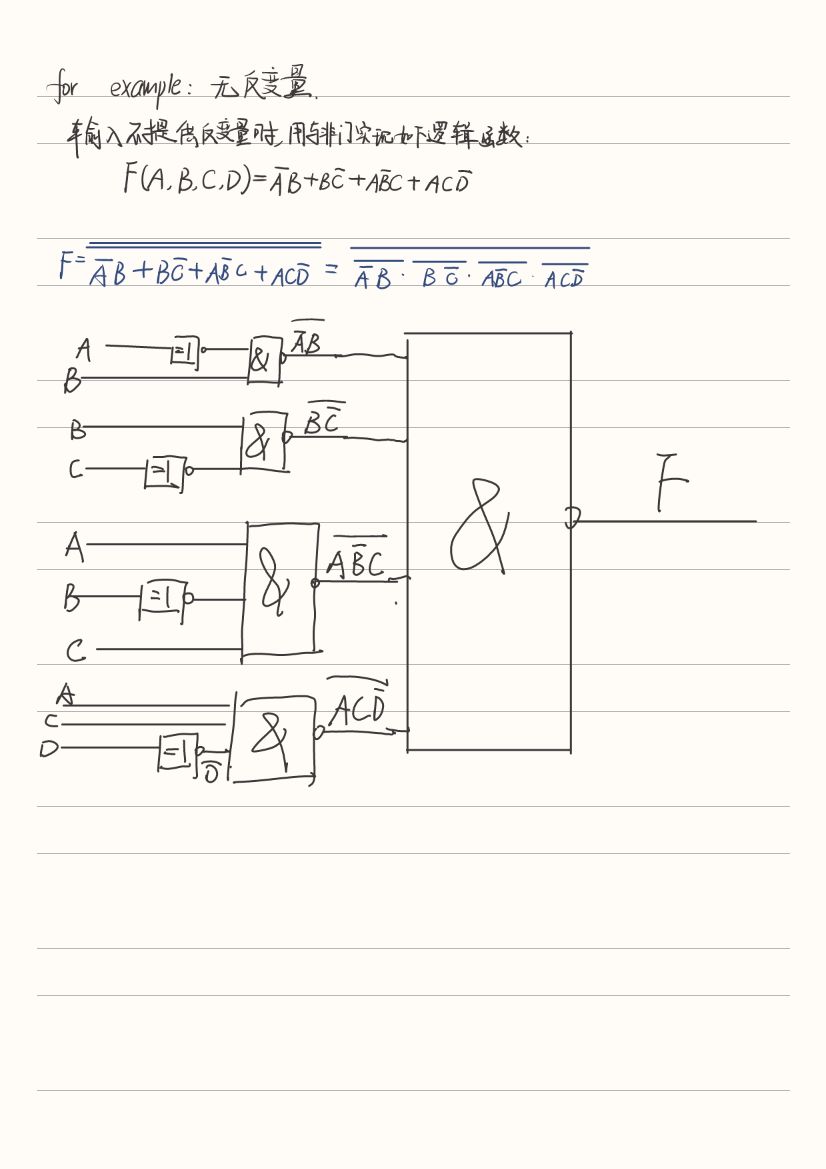 for example: 无反变量.
输入不提供反变量时,用与非门实现如下逻辑函数:
F(A,B,C,D)=A̅B+BC̅+AB̅C+ACD̅
F=A̅B+BC̅+AB̅C+ACD̅ = A̅B · BC̅ · AB̅C · ACD̅
A =1 & A̅B
B
B & BC̅
C =1
& F
A
B =1 & AB̅C
C
A
C & ACD̅
D =1 D̅